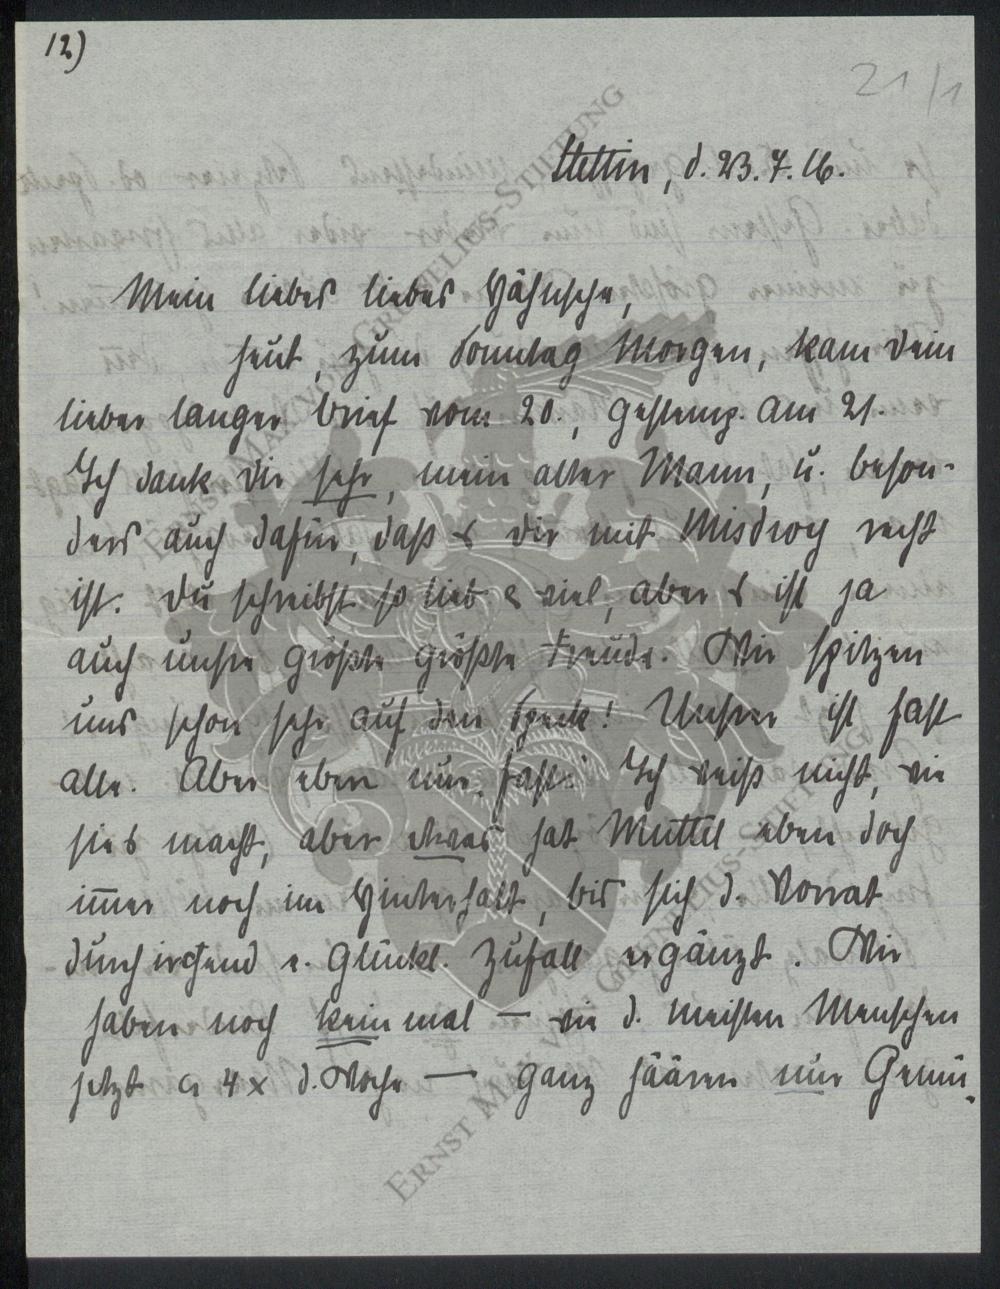 12)
21/1
Stettin, d. 23.7.16.
Mein liebes liebes Hähnsche,
heut, zum Sonntag Morgen, kam dein
lieber langer Brief vom 20., gestemp. am 21.
Ich dank dir sehr, mein alter Mann, u. beson-
ders auch dafür, daß es dir mit Misdroy recht
ist. Du schreibst so lieb & viel, aber es ist ja
auch unsre größte größte Freude. Wir spitzen
uns schon sehr auf den Speck! Unsrer ist fast
alle. Aber eben nur „fast“. Ich weiß nicht, wie
sie's macht, aber etwas hat Muttel eben doch
im̄er noch im Hinterhalt, bis sich d. Vorrat
durch irgend e. glückl. Zufall ergänzt. Wir
haben noch keinmal — wie d. meisten Menschen
jetzt ca 4 x d. Woche — ganz häären nur Gemü-
ERNST MAX VON GRUNELIUS-STIFTUNG
ERNST MAX VON GRUNELIUS-STIFTUNG